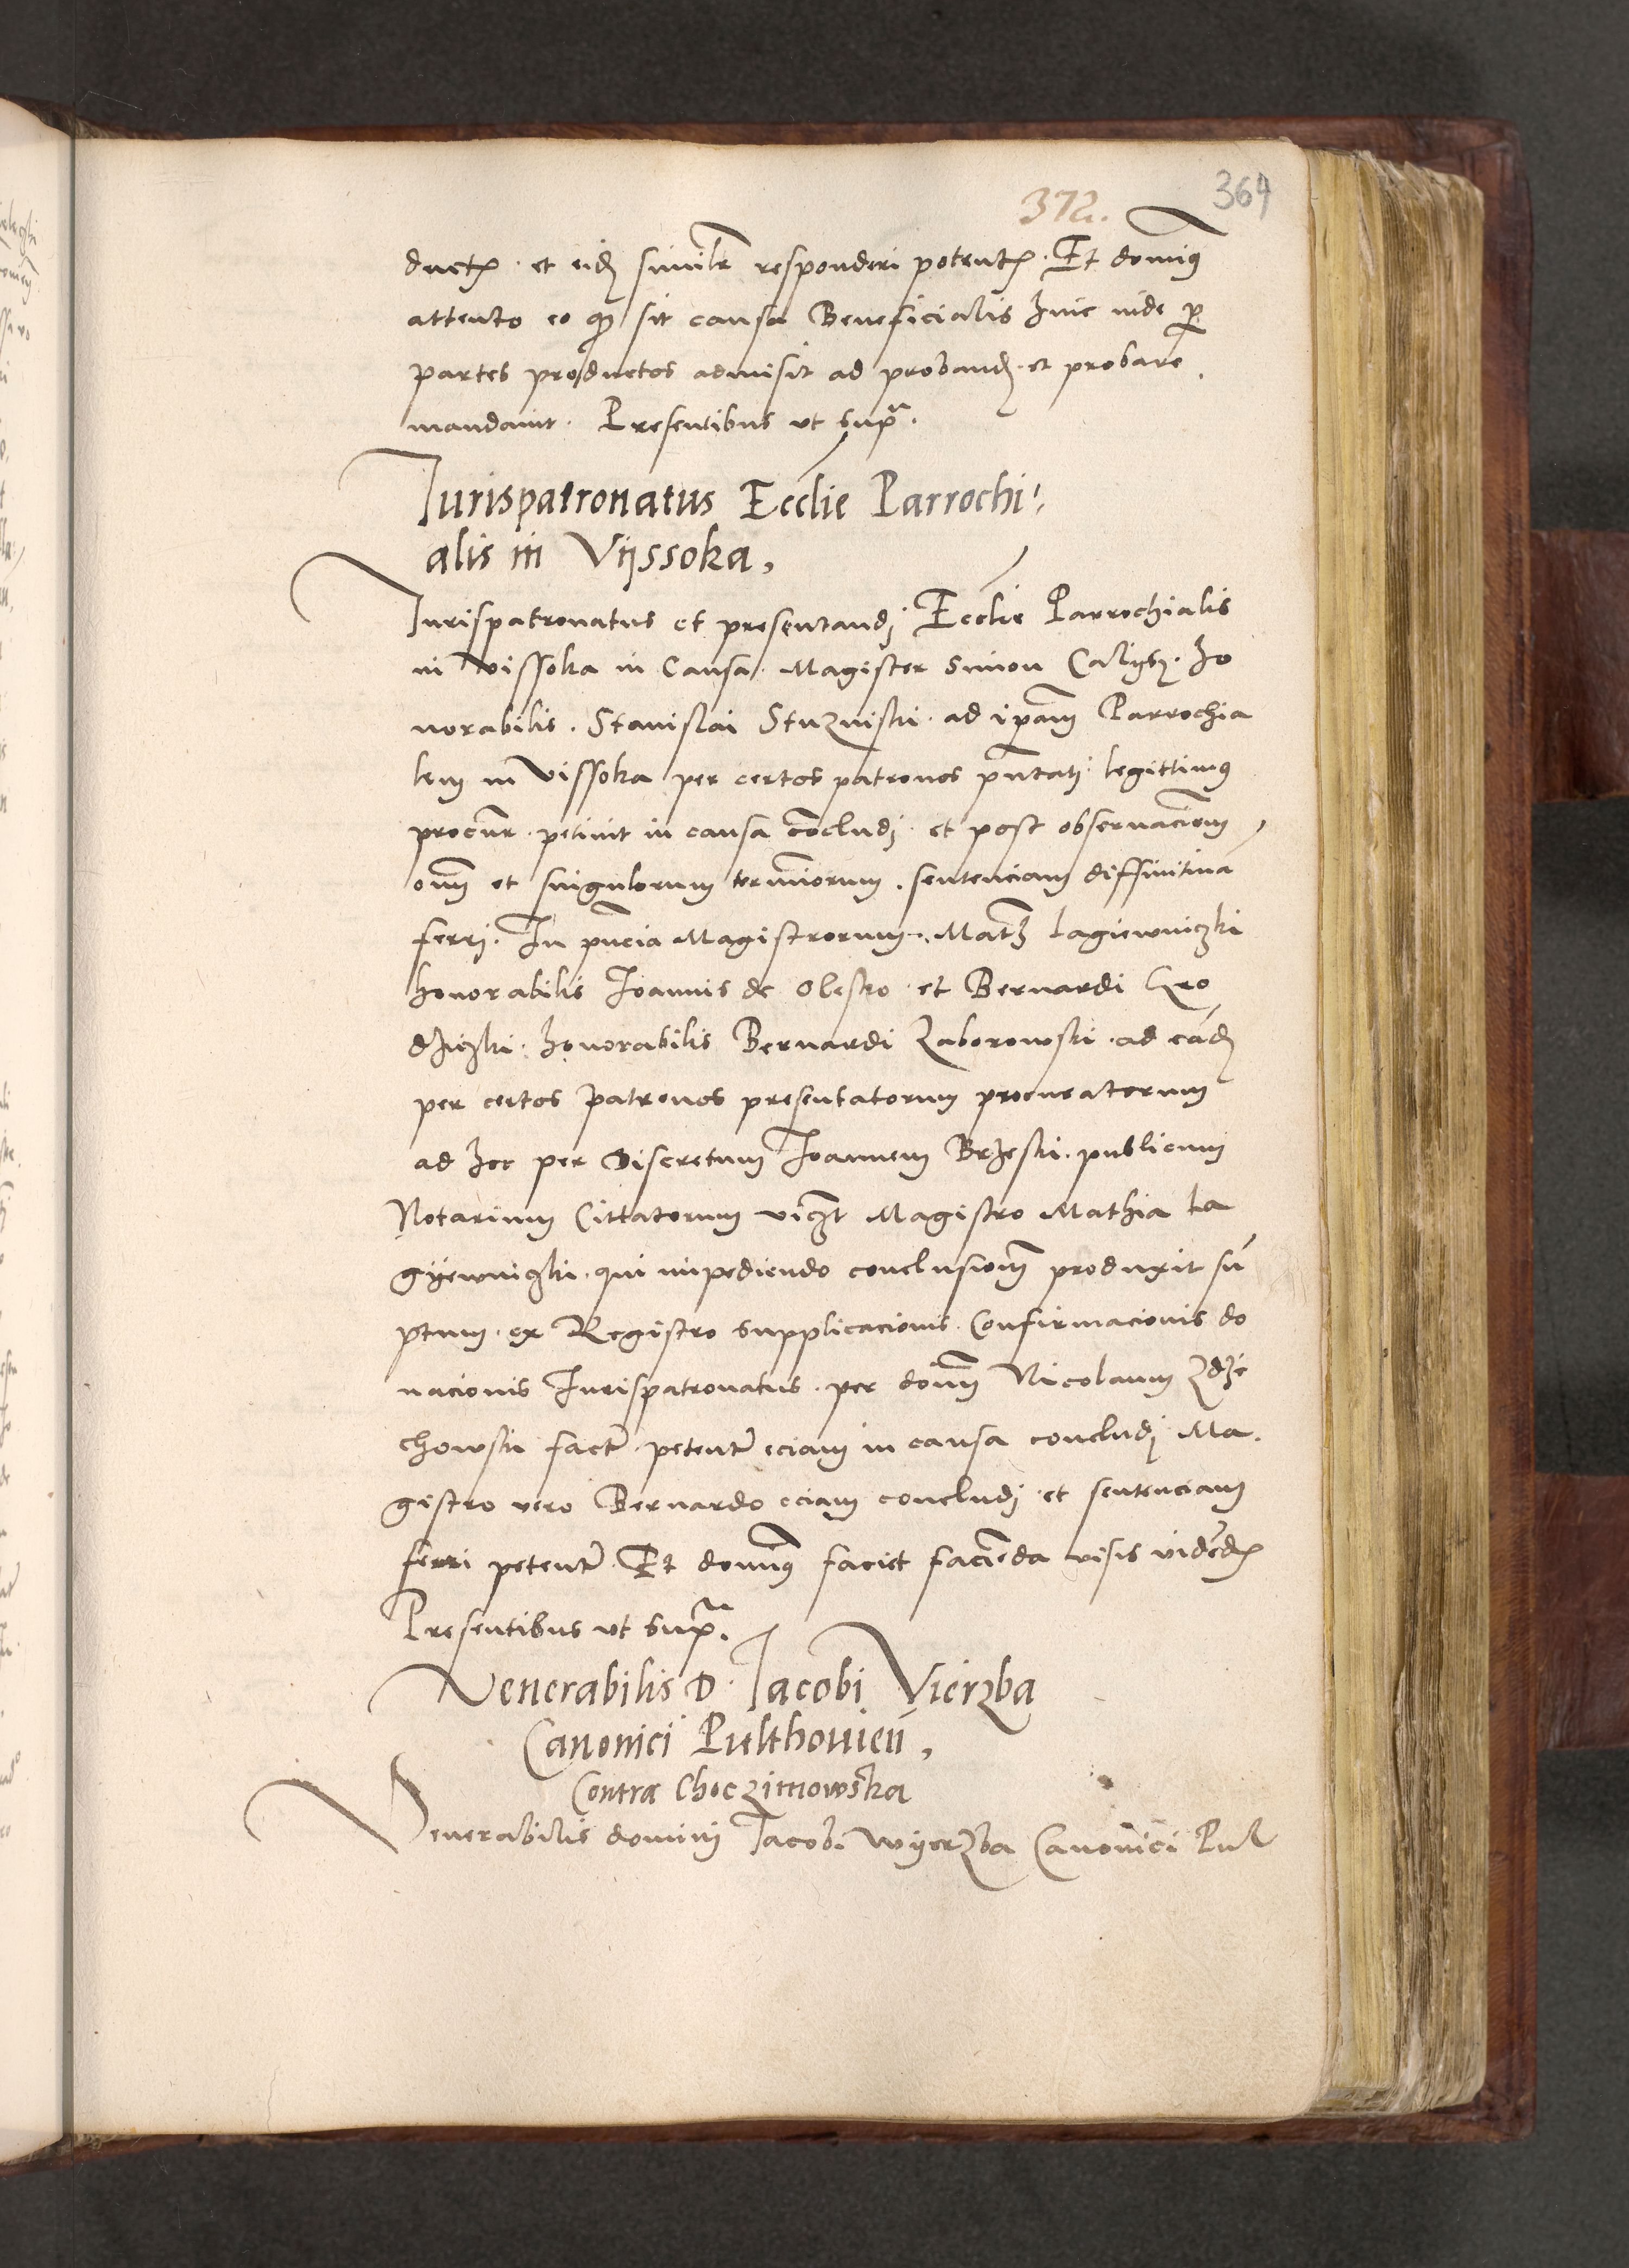 372.
364
ductꝝ. et eidꝫ similr responderi potentꝝ. Et dominꝰ
attento eo qꝫ sit causa Beneficialis hinc inde ꝑ
partes productos admisit ad proband. et probare
mandauit. Presentibus ut supra.
Iurispatronatus Ecclie Parrochi
alis in Vyssoka,
Iurispatronatus et presentandi Ecclie Parrochialis
in Vissoka in Causa. Magister Simon ho
norabilis. Stanislai Stuzniski. ad ipam Parrochia
lem in Vissoka per certos patronos pntati legittimꝰ
procur. petiuit in causa concludi. et post obseruaciem
omm et singulorum terminorum. sentenciam diffinitiua
ferri. In pncia Magistrorum. Math Lagiewniczki
honorabilis Ioannis de Olesko et Bernardi Gro
dziczki. honorabilis Bernardi Zaborowski. ad eadꝫ
per certos patronos presentatorum procuratorum
ad hoc per Discretum Ioannem Brzeski. publicum
Notarium Cittatorum vicꝫt Magistro Mathia La
gyewniczki. qui impediendo conclusionem produxit sū
ptum. ex Registro supplicacionis. Confirmacionis do
nacionis Iurispatronatus. per dominum Nicolaum Zdzie
chowski fact petente eciam in causa concludi Ma
gistro vero Bernardo eciam concludi et sentenciam
ferri petente. Et dominꝰ faciet facienda visis videdꝝ
Presentibus ut supra.
Venerabilis D. Iacobi Vierzba
Canonici Pulthouien,
Contra Choczimowska
Venerabilis domini Iacobi Wyerzba Canonici Pul